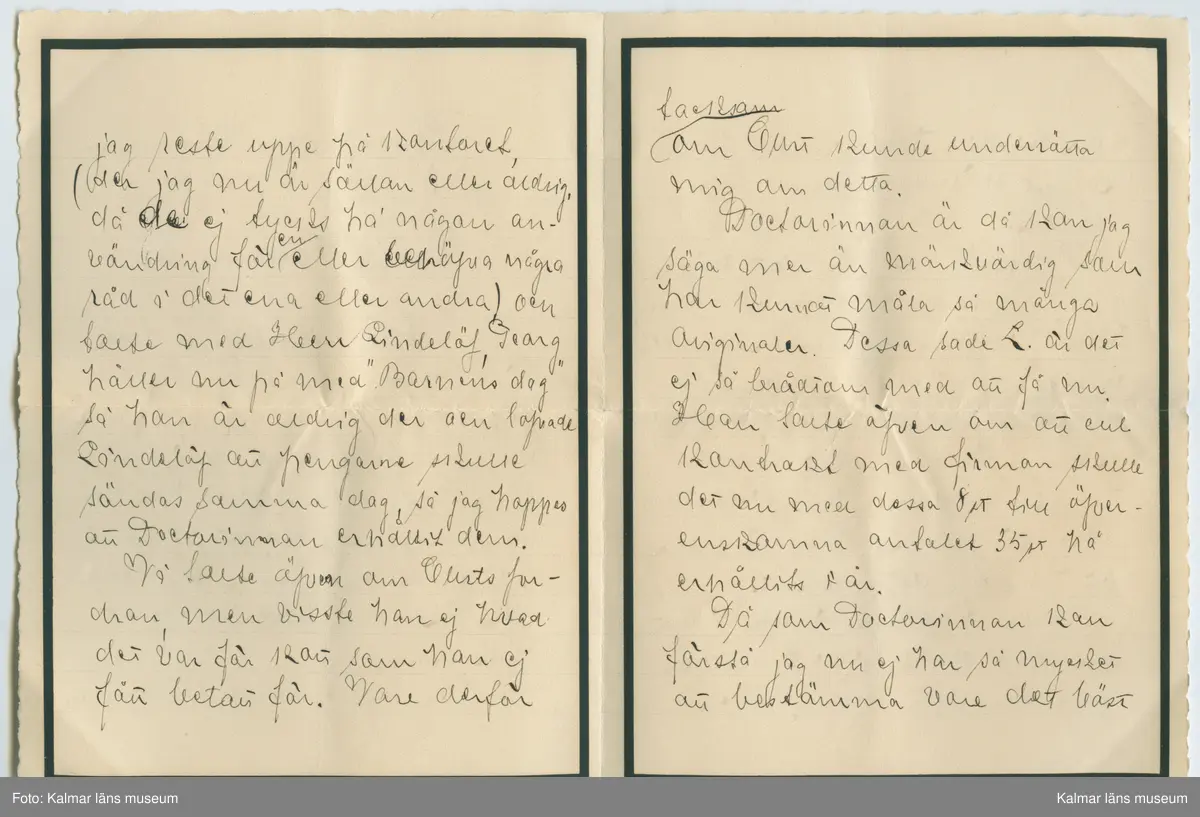 jag reste uppe på kontoret,
(der jag nu är sällan eller aldrig,
då de ej tycks ha någon an-
vändning för en eller behöfva några
råd i det ena eller andra) och
talte med Herr Lindelöf, Georg
håller nu på med "Barnens dag"
så han är aldrig der och lofvade
Lindelöf att pengarne skulle
sändas samma dag, så jag hoppes
att Doctorinnan erhållit dem.
Vi talte äfven om Elsts for-
dran, men visste han ej hvad
det var för kort som han ej
fått betalt för. Vore derför
tacksam
om Elst kunde underrätta
mig om detta.
Doctorinnan är då kan jag
säga mer än märkvärdig som
har kunnat måla så många
originaler. Dessa sade L. är det
ej så brådtom med att få nu.
Han talte äfven om att enl.
kontrakt med firman skulle
det nu med dessa 8 st till öfver-
enskomna antalet 35 st ha
erhållits i år.
Då som Doctorinnan kan
förstå jag nu ej har så mycket
att bestämma vore det bäst
Foto: Kalmar läns museum
Kalmar läns museum